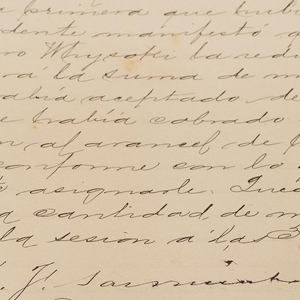 primera que hub
dente manifestó q
ro Wysoki la redu
ra á la suma de m
abía aceptado de
e había cobrado
n al arancel de
conforme con lo
asignarle. Que
a cantidad de m
la sesion á las
J. Sarmiento